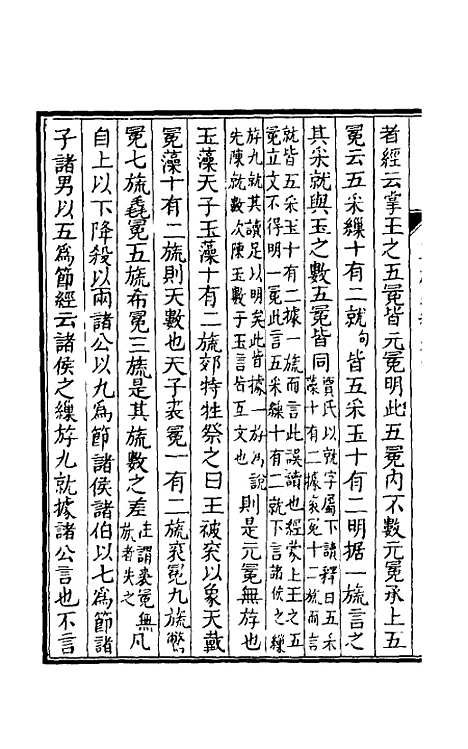 者經云掌王之五冕皆元冕明此五冕內不數元冕承上五
冕云五采繅十有二就句皆五采玉十有二明据一旒言之
其采就與玉之數五冕皆同賈氏以就字屬下讀釋曰五采
藻十有二據袞冕十二旒而言
就皆五采玉十有二據一旒而言此誤讀也經蒙上王之五
冕立文不得明一冕此言五采繅十有二就下言諸侯之繅
斿九就其讀足以明矣此皆據一斿爲說
先陳就數次陳玉數于玉言皆互文也則是元冕無斿也
玉藻天子玉藻十有二旒郊特牲祭之日王被袞以象天戴
冕藻十有二旒則天數也天子裘冕一有二旒袞冕九旒鷩
冕七旒毳冕五旒布冕三旒是其旒數之差注謂裘冕無
旒者失之凡
自上以下降殺以兩諸公以九爲節諸侯諸伯以七爲節諸
子諸男以五爲節經云諸侯之繅斿九就據諸公言也不言